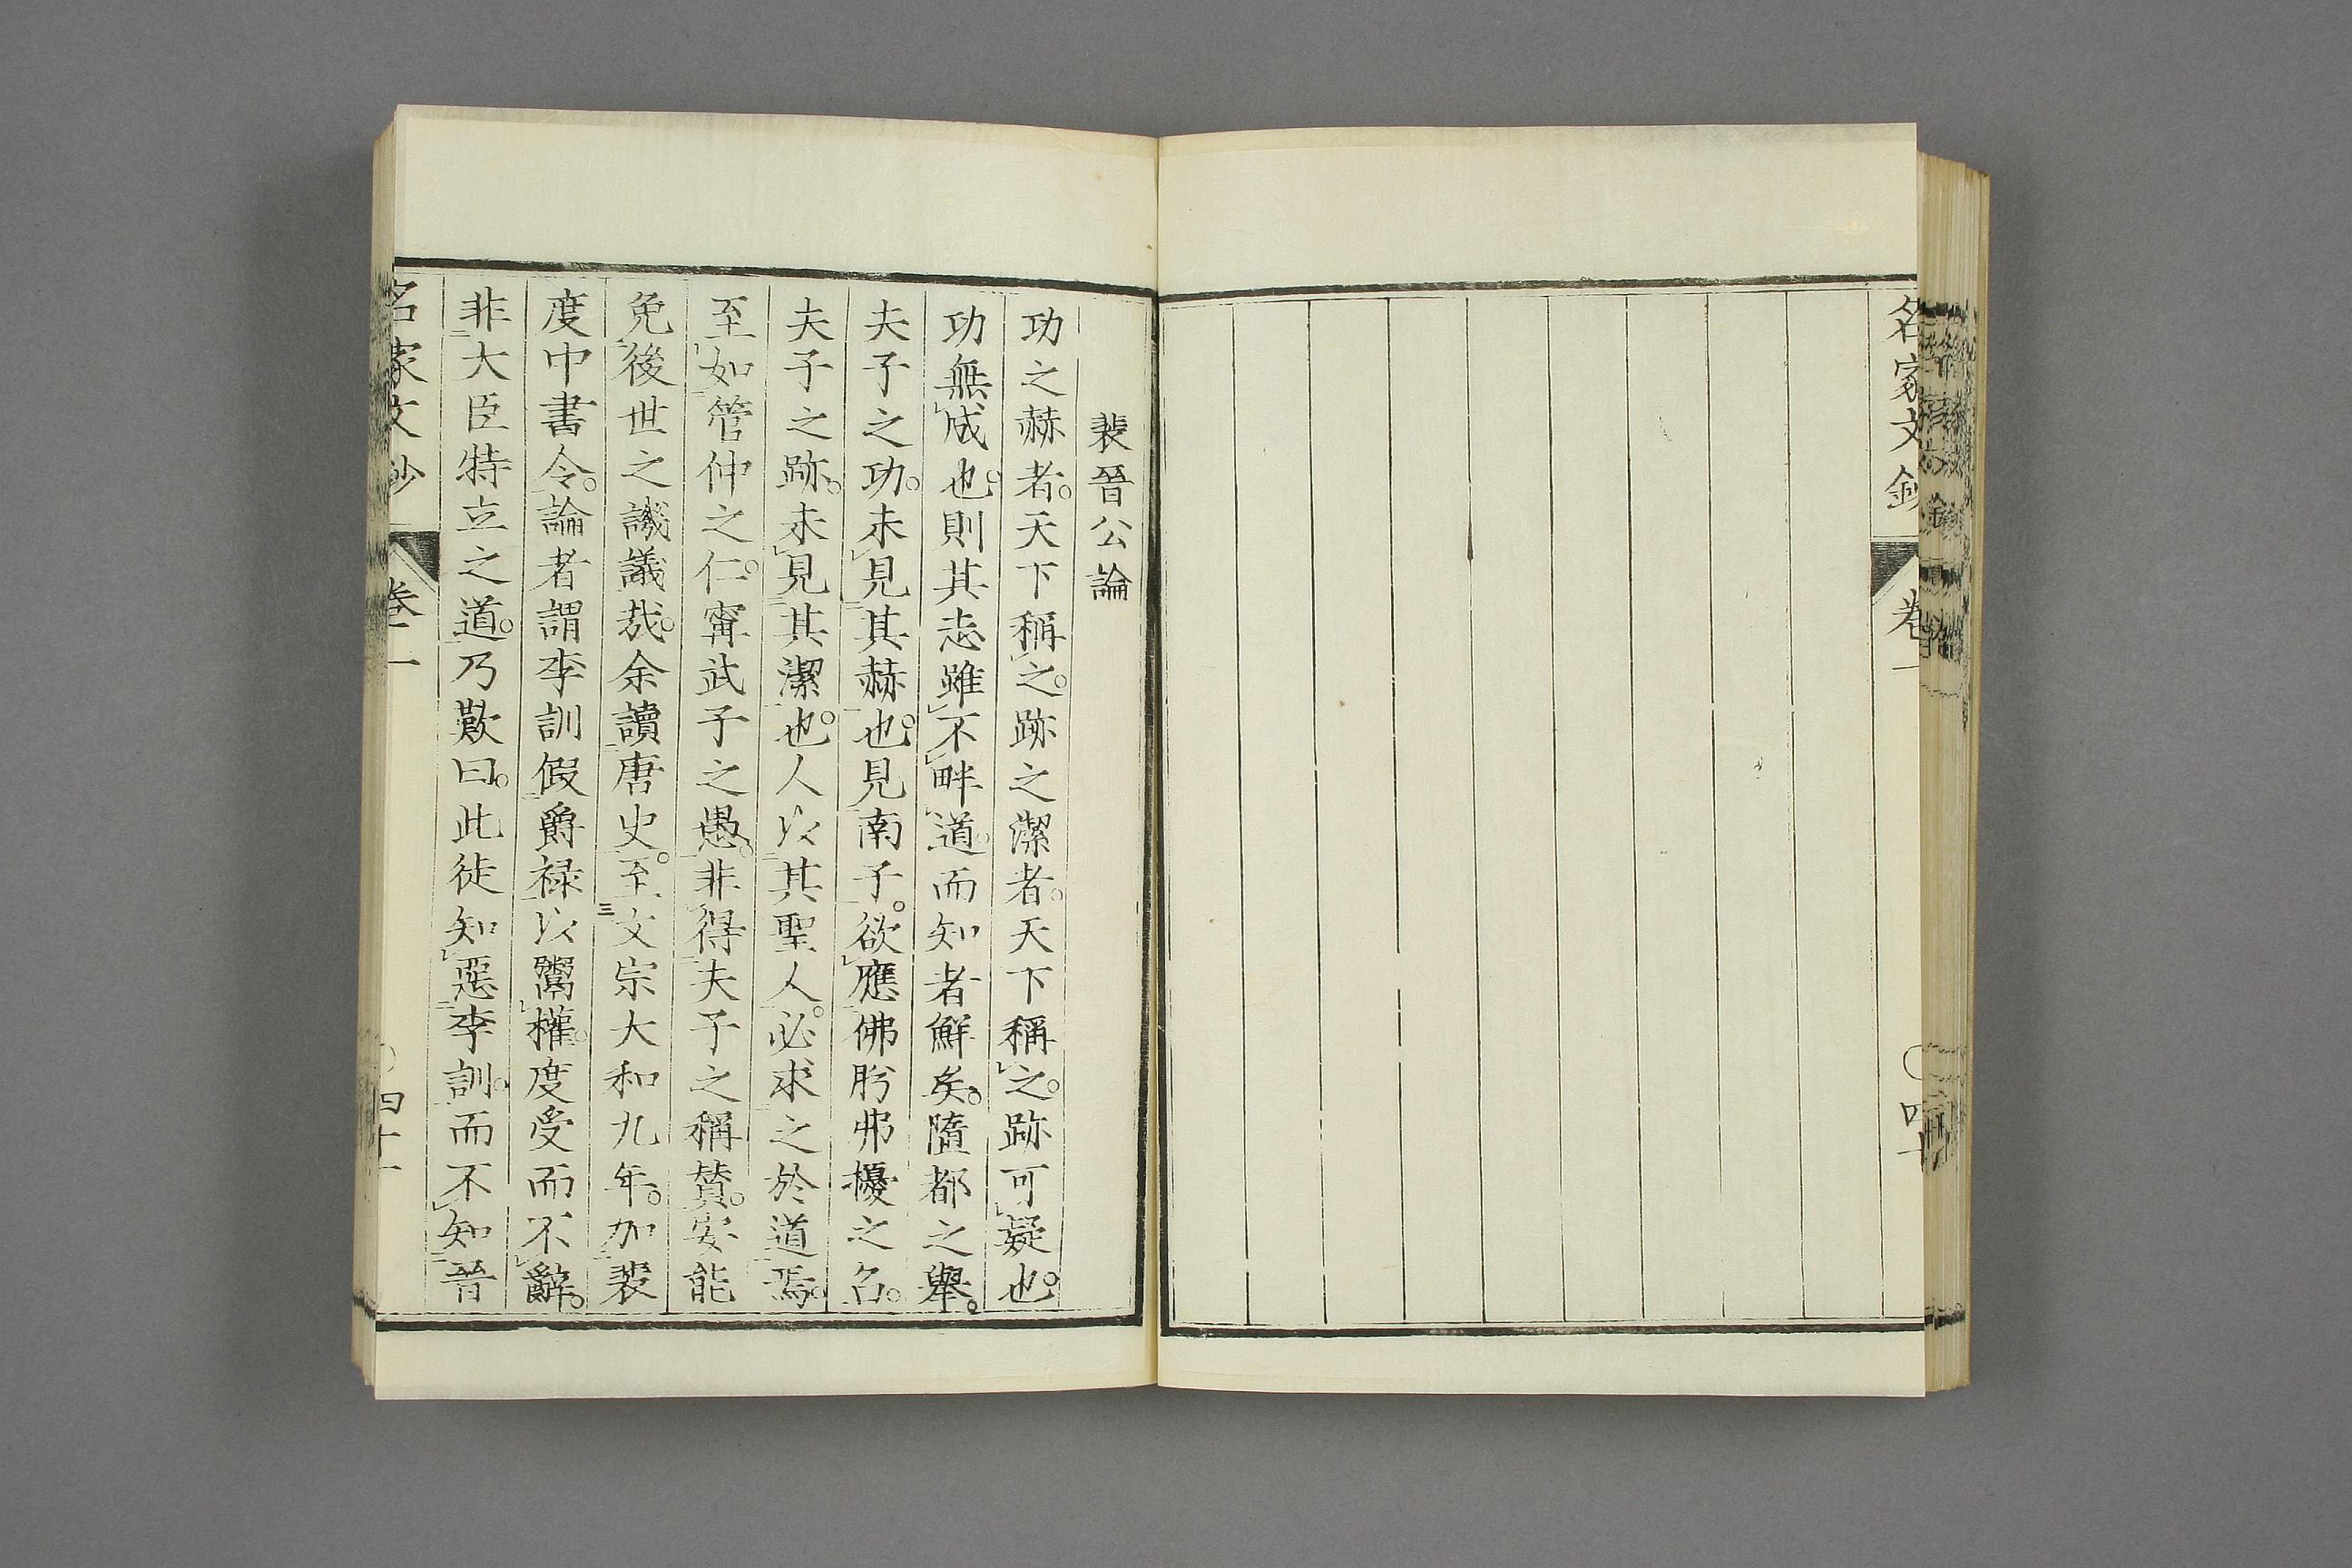 名家文鈔 卷一 〇 四十
裴晉公論
功之赫者。天下稱之。跡之潔者。天下稱之。跡可疑也。
功無成也。則其志雖不畔道。而知者鮮矣。隳都之舉。
夫子之功。未見其赫也。見南子。欲應佛肸弗擾之召。
夫子之跡。未見其潔也。人以其聖人。必求之於道焉。
至如管仲之仁。甯武子之愚。非得夫子之稱贊。安能
免後世之譏議哉。余讀唐史。至文宗大和九年。加裴
度中書令。論者謂李訓假爵祿以鬻權。度受而不辭。
非大臣特立之道。乃歎曰。此徒知惡李訓。而不知晉
名家文鈔 卷一 〇 四十一